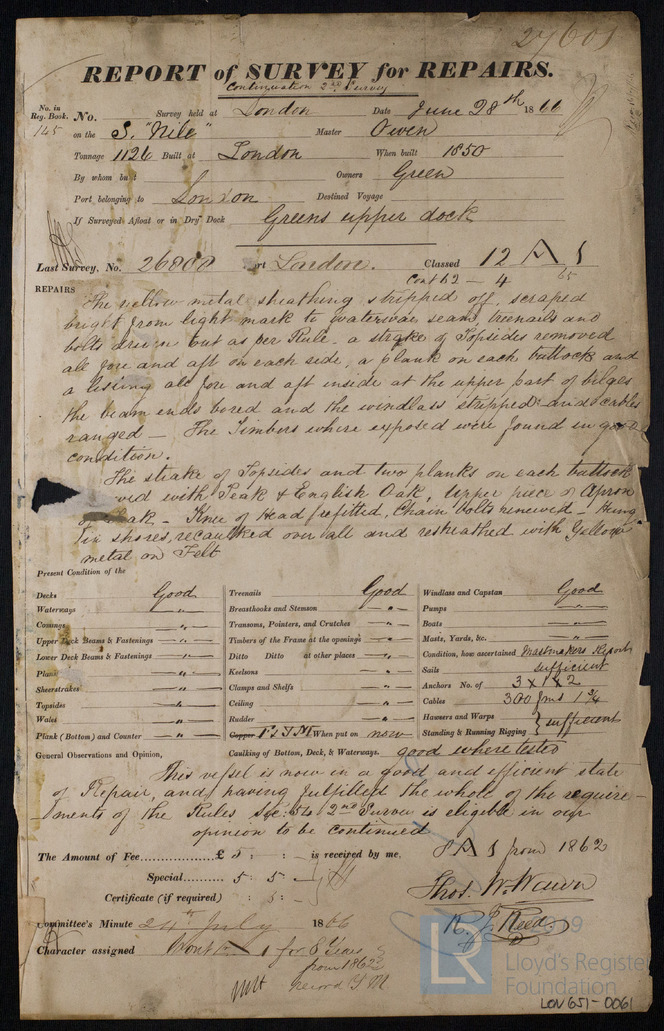 27601
REPORT of SURVEY for REPAIRS.
Continuation 2nd Survey
No. in Reg. Book. No. Survey held at London Date June 28th 1866
145 on the S. "Nile" Master Owen
Tonnage 1126 Built at London When built 1850
By whom built Owners Green
Port belonging to London Destined Voyage
If Surveyed Afloat or in Dry Dock Greens upper dock
Last Survey, No. 26808 Port London. Classed 12 A 1
Cont 62 - 4 65
REPAIRS
The yellow metal sheathing stripped off, scraped
bright from light mark to waterway seam, treenails and
bolts driven out as per Rule - a strake of Topsides removed
all fore and aft on each side, a plank on each buttock and
a listing all fore and aft inside at the upper part of bilges
the beam ends bored and the windlass stripped and cables
ranged — The Timbers where exposed were found in good
condition.
The strake of Topsides and two planks on each buttock
with Teak & English Oak, upper piece of Apron
of Teak - Knee of Head refitted, Chain bolts renewed - Hung
in shores, recaulked over all and resheathed with Yellow
metal on Felt
Present Condition of the
Decks Good Treenails Good Windlass and Capstan Good
Waterways — " — Breasthooks and Stemson — " — Pumps — " —
Comings — " — Transoms, Pointers, and Crutches — " — Boats — " —
Upper Deck Beams & Fastenings — " — Timbers of the Frame at the openings — " — Masts, Yards, &c. — " —
Lower Deck Beams & Fastenings — " — Ditto Ditto at other places — " — Condition, how ascertained Mastmakers Report
Planks — " — Keelsons — " — Sails sufficient
Sheerstrakes — " — Clamps and Shelfs — " — Anchors No. of 3 x 1 x 2
Topsides — " — Ceiling — " — Cables 300 fms 1 3/4
Wales — " — Rudder — " — Hawsers and Warps } sufficient
Plank (Bottom) and Counter — " — Copper F & YM When put on now Standing & Running Rigging
General Observations and Opinion, Caulking of Bottom, Deck, & Waterways. good where tested
This vessel is now in a good and efficient state
of Repair, and having fulfilled the whole of the require-
ments of the Rules Sec: 54 2nd Survey is eligible in our
opinion to be continued
8 A 1 from 1862
The Amount of Fee £ 5 : : - is received by me,
Special 5 : 5 : -
Certificate (if required) : 5 : -
Thos. W. Wawn
R. J. Reed
Committee's Minute 24th July 1866
Character assigned Cont A 1 for 8 Years
from 1862
record Y M
2019
LR
Lloyd's Register
Foundation
LON651-0061